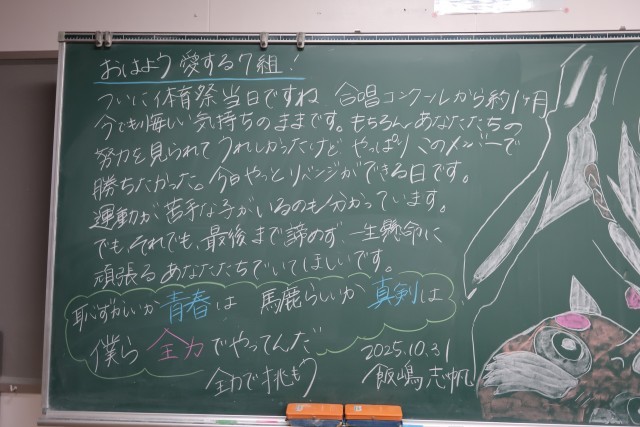 おはよう愛する7組！
ついに体育祭当日ですね 合唱コンクールから約1ヶ月
今でも悔しい気持ちのままです。もちろんあなたたちの
努力を見られてうれしかったけど やっぱり このメンバーで
勝ちたかった。今日やっとリベンジができる日です。
運動が苦手な子がいるのも分かっています。
でも、それでも、最後まで諦めず、一生懸命に
頑張るあなたたちでいてほしいです。
恥ずかしいか 青春は 馬鹿らしいか 真剣は
僕ら 全力でやってんだ
全力で挑もう
2025.10.31
飯嶋志帆